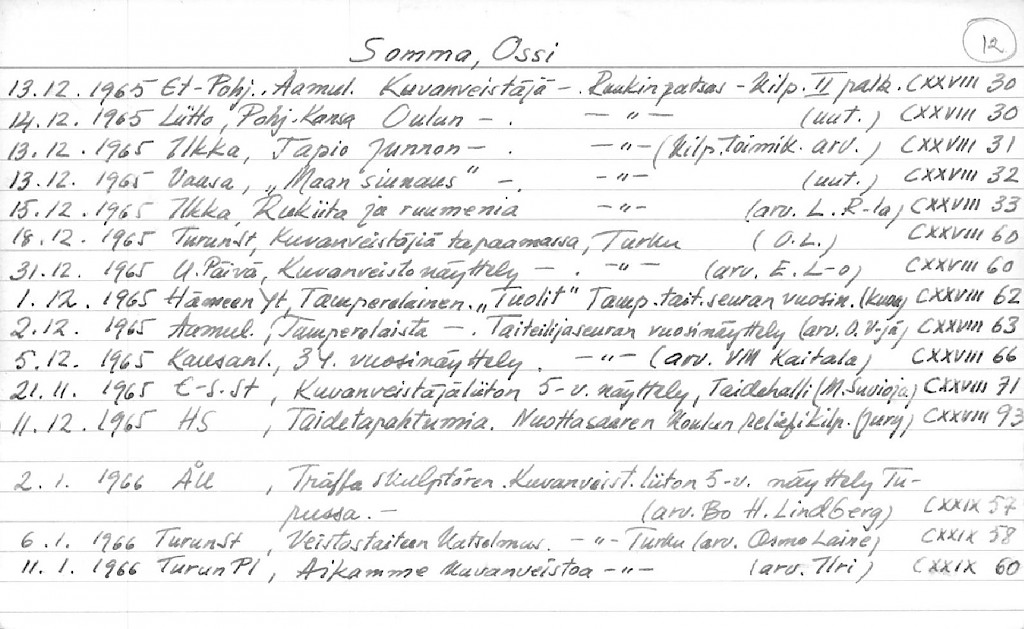 12
Somma, Ossi
13.12.1965 Et-Pohj., Aamul. Kuvanveistäjä -. Ruukinpatsas - Kilp. II palk. CXXVIII 30
14.12.1965 Liitto, Pohj.Kansa Oulun - . - " - (uut.) CXXVIII 30
13.12.1965 Ilkka, Tapio Junnon - . - " - (Kilp.toimik. arv.) CXXVIII 31
13.12.1965 Vaasa, "Maan siunaus" -. - " - (uut.) CXXVIII 32
15.12.1965 Ilkka, Rukiita ja ruumenia - " - (arv. L. R-la) CXXVIII 33
18.12.1965 TurunSt, Kuvanveistäjiä tapaamassa, Turku (O.L.) CXXVIII 60
31.12.1965 U.Päivä, Kuvanveistonäyttely - . - " - (arv. E. L-o) CXXVIII 60
1.12.1965 Hämeen Yt, Tamperelainen. "Tuolit" Tamp.tait.seuran vuosin. (kuva) CXXVIII 62
2.12.1965 Aamul., Tamperelaista -. Taiteilijaseuran vuosinäyttely (arv. O.V-jä) CXXVIII 63
5.12.1965 Kansanl., 34. vuosinäyttely. - " - (arv. VM Kaitala) CXXVIII 66
21.11.1965 E-S.St, Kuvanveistäjäliiton 5-v. näyttely, Taidehalli (M.Suvioja) CXXVIII 71
11.12.1965 HS, Taidetapahtumia. Nuottasaaren Koulun reliefikilp. (jury) CXXVIII 93
2.1.1966 ÅU, Träffa skulptören. Kuvanveist.liiton 5-v. näyttely Tu-
russa. - (arv. Bo H. Lindberg) CXXIX 57
6.1.1966 TurunSt, Veistostaiteen Katselmus. - " - Turku (arv. Osmo Laine) CXXIX 58
11.1.1966 TurunPl, Aikamme kuvanveistoa - " - (arv. Ilri) CXXIX 60